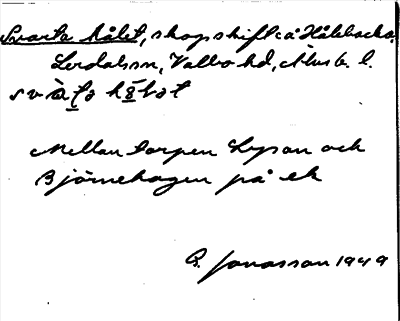 Svarta hålet, skogsskifte å Hålebacka,
Lerdalsn, Valbo hd, Älvsb. l.
svàṭa hå̱ḷət
Mellan torpen Lysan och
Björnehagen på ek
B. Jonasson 1949